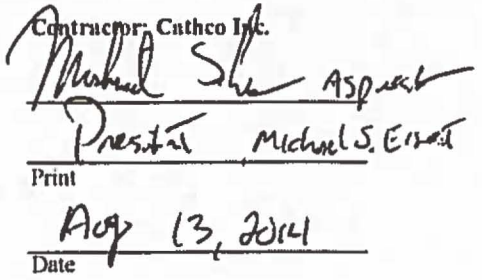 Contractor: Cathco Inc.
Michael
President Michael S.
Print
Aug 13, 2014
Date